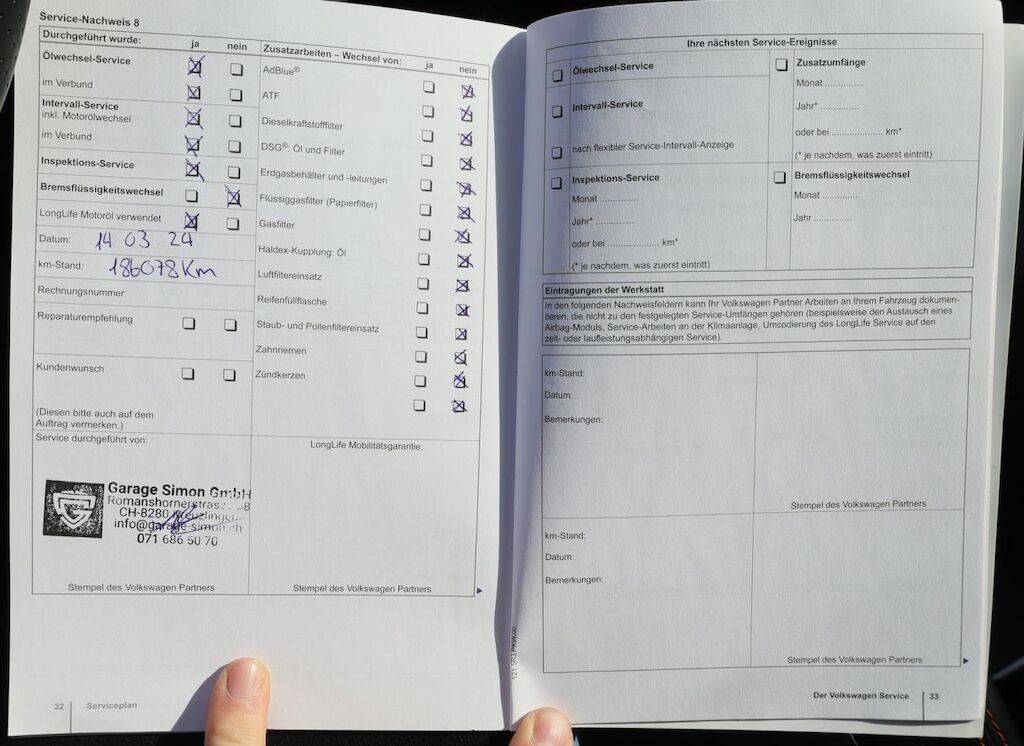 Service-Nachweis 8
Durchgeführt wurde: ja nein
Ölwechsel-Service
im Verbund
Intervall-Service
inkl. Motorölwechsel
im Verbund
Inspektions-Service
Bremsflüssigkeitswechsel
LongLife Motoröl verwendet
Datum: 14 03. 24
km-Stand: 186078 Km
Rechnungsnummer:
Reparaturempfehlung
Kundenwunsch
(Diesen bitte auch auf dem
Auftrag vermerken.)
Service durchgeführt von:
Garage Simon GmbH
Romanshornerstras
CH-8280 Kreuzlingen
info@garage-simon.ch
071 686 50 70
Stempel des Volkswagen Partners
Zusatzarbeiten – Wechsel von: ja nein
AdBlue®
ATF
Dieselkraftstofffilter
DSG®: Öl und Filter
Erdgasbehälter und -leitungen
Flüssiggasfilter (Papierfilter)
Gasfilter
Haldex-Kupplung: Öl
Luftfiltereinsatz
Reifenfüllflasche
Staub- und Pollenfiltereinsatz
Zahnriemen
Zündkerzen
LongLife Mobilitätsgarantie:
Stempel des Volkswagen Partners
32 Serviceplan
Ihre nächsten Service-Ereignisse
Ölwechsel-Service
Intervall-Service
nach flexibler Service-Intervall-Anzeige
Inspektions-Service
Monat ..............
Jahr* ..............
oder bei .................... km*
(* je nachdem, was zuerst eintritt)
Zusatzumfänge
Monat ..............
Jahr* ..............
oder bei .................... km*
(* je nachdem, was zuerst eintritt)
Bremsflüssigkeitswechsel
Monat ..............
Jahr ..............
Eintragungen der Werkstatt
In den folgenden Nachweisfeldern kann Ihr Volkswagen Partner Arbeiten an Ihrem Fahrzeug dokumen-
tieren, die nicht zu den festgelegten Service-Umfängen gehören (beispielsweise den Austausch eines
Airbag-Moduls, Service-Arbeiten an der Klimaanlage, Umcodierung des LongLife Service auf den
zeit- oder laufleistungsabhängigen Service).
km-Stand:
Datum:
Bemerkungen:
Stempel des Volkswagen Partners
km-Stand:
Datum:
Bemerkungen:
Stempel des Volkswagen Partners
121.5R3.PKW.00
Der Volkswagen Service 33